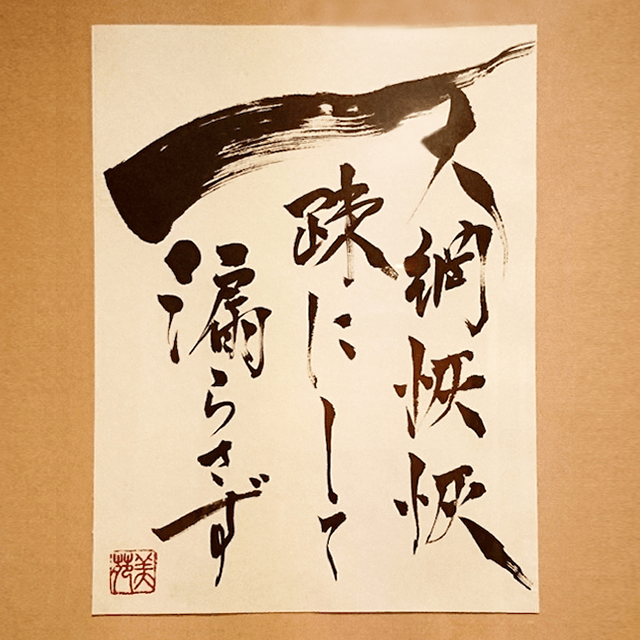 天網恢恢
疎にして
漏らさず
美苑